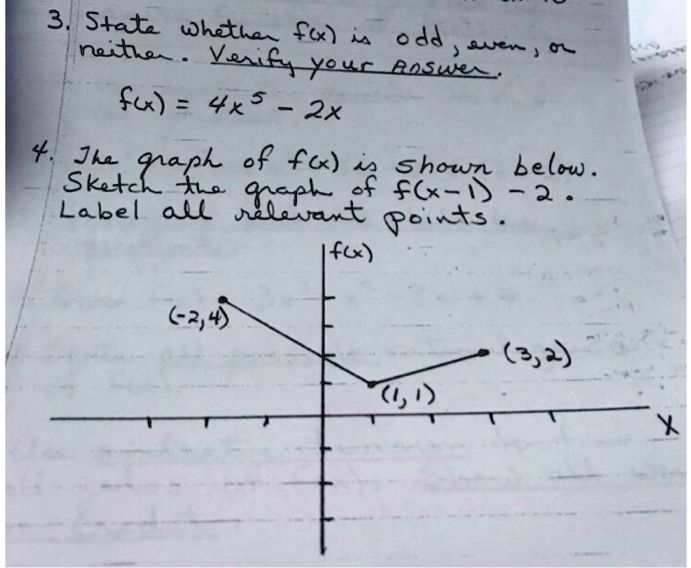 3. State whether f(x) is odd, even, or
neither. Verify your Answer.
f(x) = 4x⁵ - 2x
4. The graph of f(x) is shown below.
Sketch the graph of f(x-1) - 2.
Label all relevant points.
f(x)
(-2,4)
(3,2)
(1,1)
X